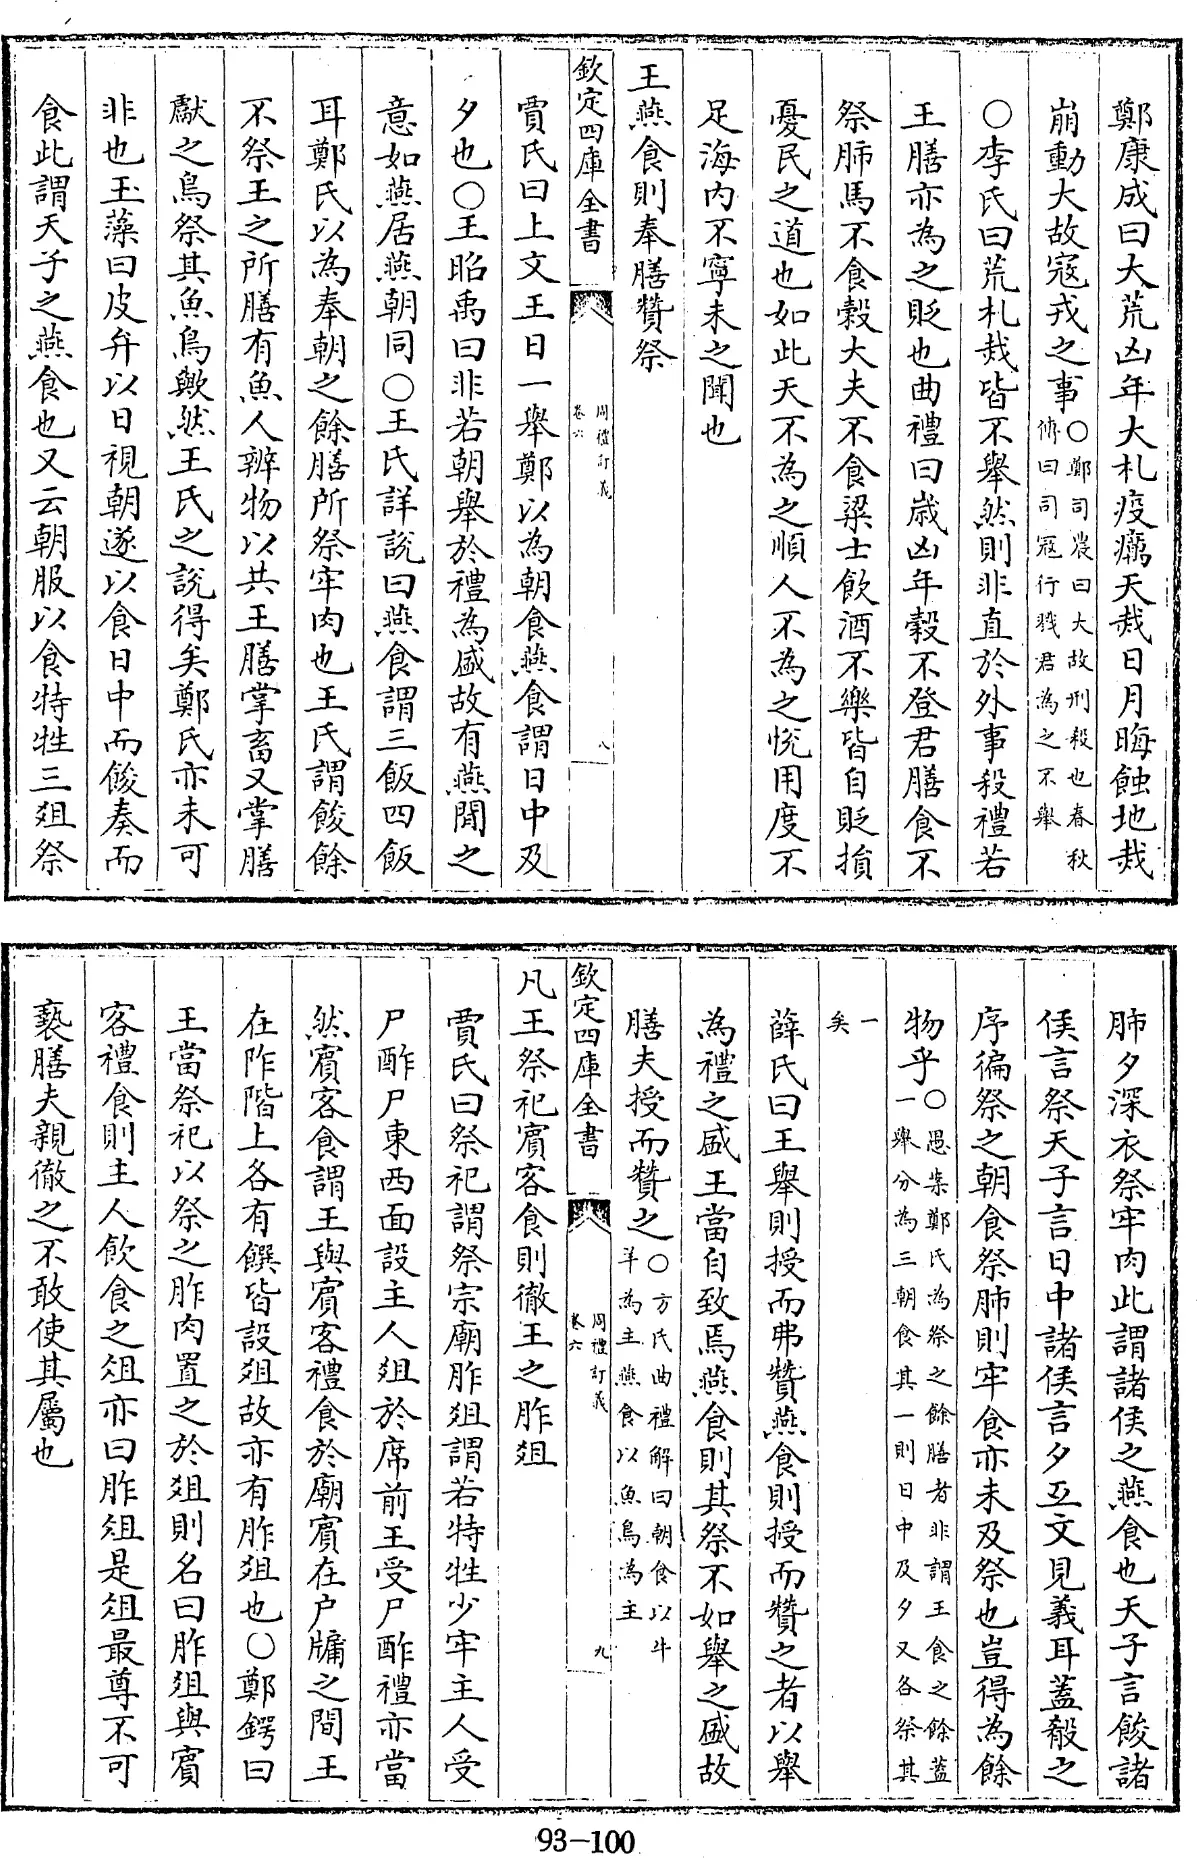 鄭康成曰大荒凶年大札疫癘天烖日月晦蝕地烖
崩動大故寇戎之事○鄭司農曰大故刑殺也春秋傳曰司寇行戮君為之不舉
○李氏曰荒札烖皆不舉然則非直於外事殺禮若
王膳亦為之貶也曲禮曰歳凶年穀不登君膳食不
祭肺馬不食穀大夫不食粱士飲酒不樂皆自貶損
憂民之道也如此天不為之順人不為之悅用度不
足海内不寧未之聞也
王燕食則奉膳贊祭
欽定四庫全書 周禮訂義 卷六 八
賈氏曰上文王日一舉鄭以為朝食燕食謂日中及
夕也○王昭禹曰非若朝舉於禮為盛故有燕閒之
意如燕居燕朝同○王氏詳說曰燕食謂三飯四飯
耳鄭氏以為奉朝之餘膳所祭牢肉也王氏謂餕餘
不祭王之所膳有魚人辨物以共王膳掌畜又掌膳
獻之鳥祭其魚鳥歟然王氏之說得矣鄭氏亦未可
非也玉藻曰皮弁以日視朝遂以食日中而餕奏而
食此謂天子之燕食也又云朝服以食特牲三爼祭
肺夕深衣祭牢肉此謂諸侯之燕食也天子言餕諸
侯言祭天子言日中諸侯言夕互文見義耳蓋殽之
序徧祭之朝食祭肺則牢食亦未及祭也豈得為餘
物乎○愚案鄭氏為祭之餘膳者非謂王食之餘蓋一舉分為三朝食其一則日中及夕又各祭其
一矣
薛氏曰王舉則授而弗贊燕食則授而贊之者以舉
為禮之盛王當自致焉燕食則其祭不如舉之盛故
膳夫授而贊之○方氏曲禮解曰朝食以牛羊為主燕食以魚鳥為主
欽定四庫全書 周禮訂義 卷六 九
凡王祭祀賓客食則徹王之胙爼
賈氏曰祭祀謂祭宗廟胙爼謂若特牲少牢主人受
尸酢尸東西面設主人爼於席前王受尸酢禮亦當
然賓客食謂王與賓客禮食於廟賓在户牖之間王
在阼階上各有饌皆設爼故亦有胙爼也○鄭鍔曰
王當祭祀以祭之胙肉置之於爼則名曰胙爼與賓
客禮食則主人飲食之爼亦曰胙爼是爼最尊不可
褻膳夫親徹之不敢使其屬也
93-100